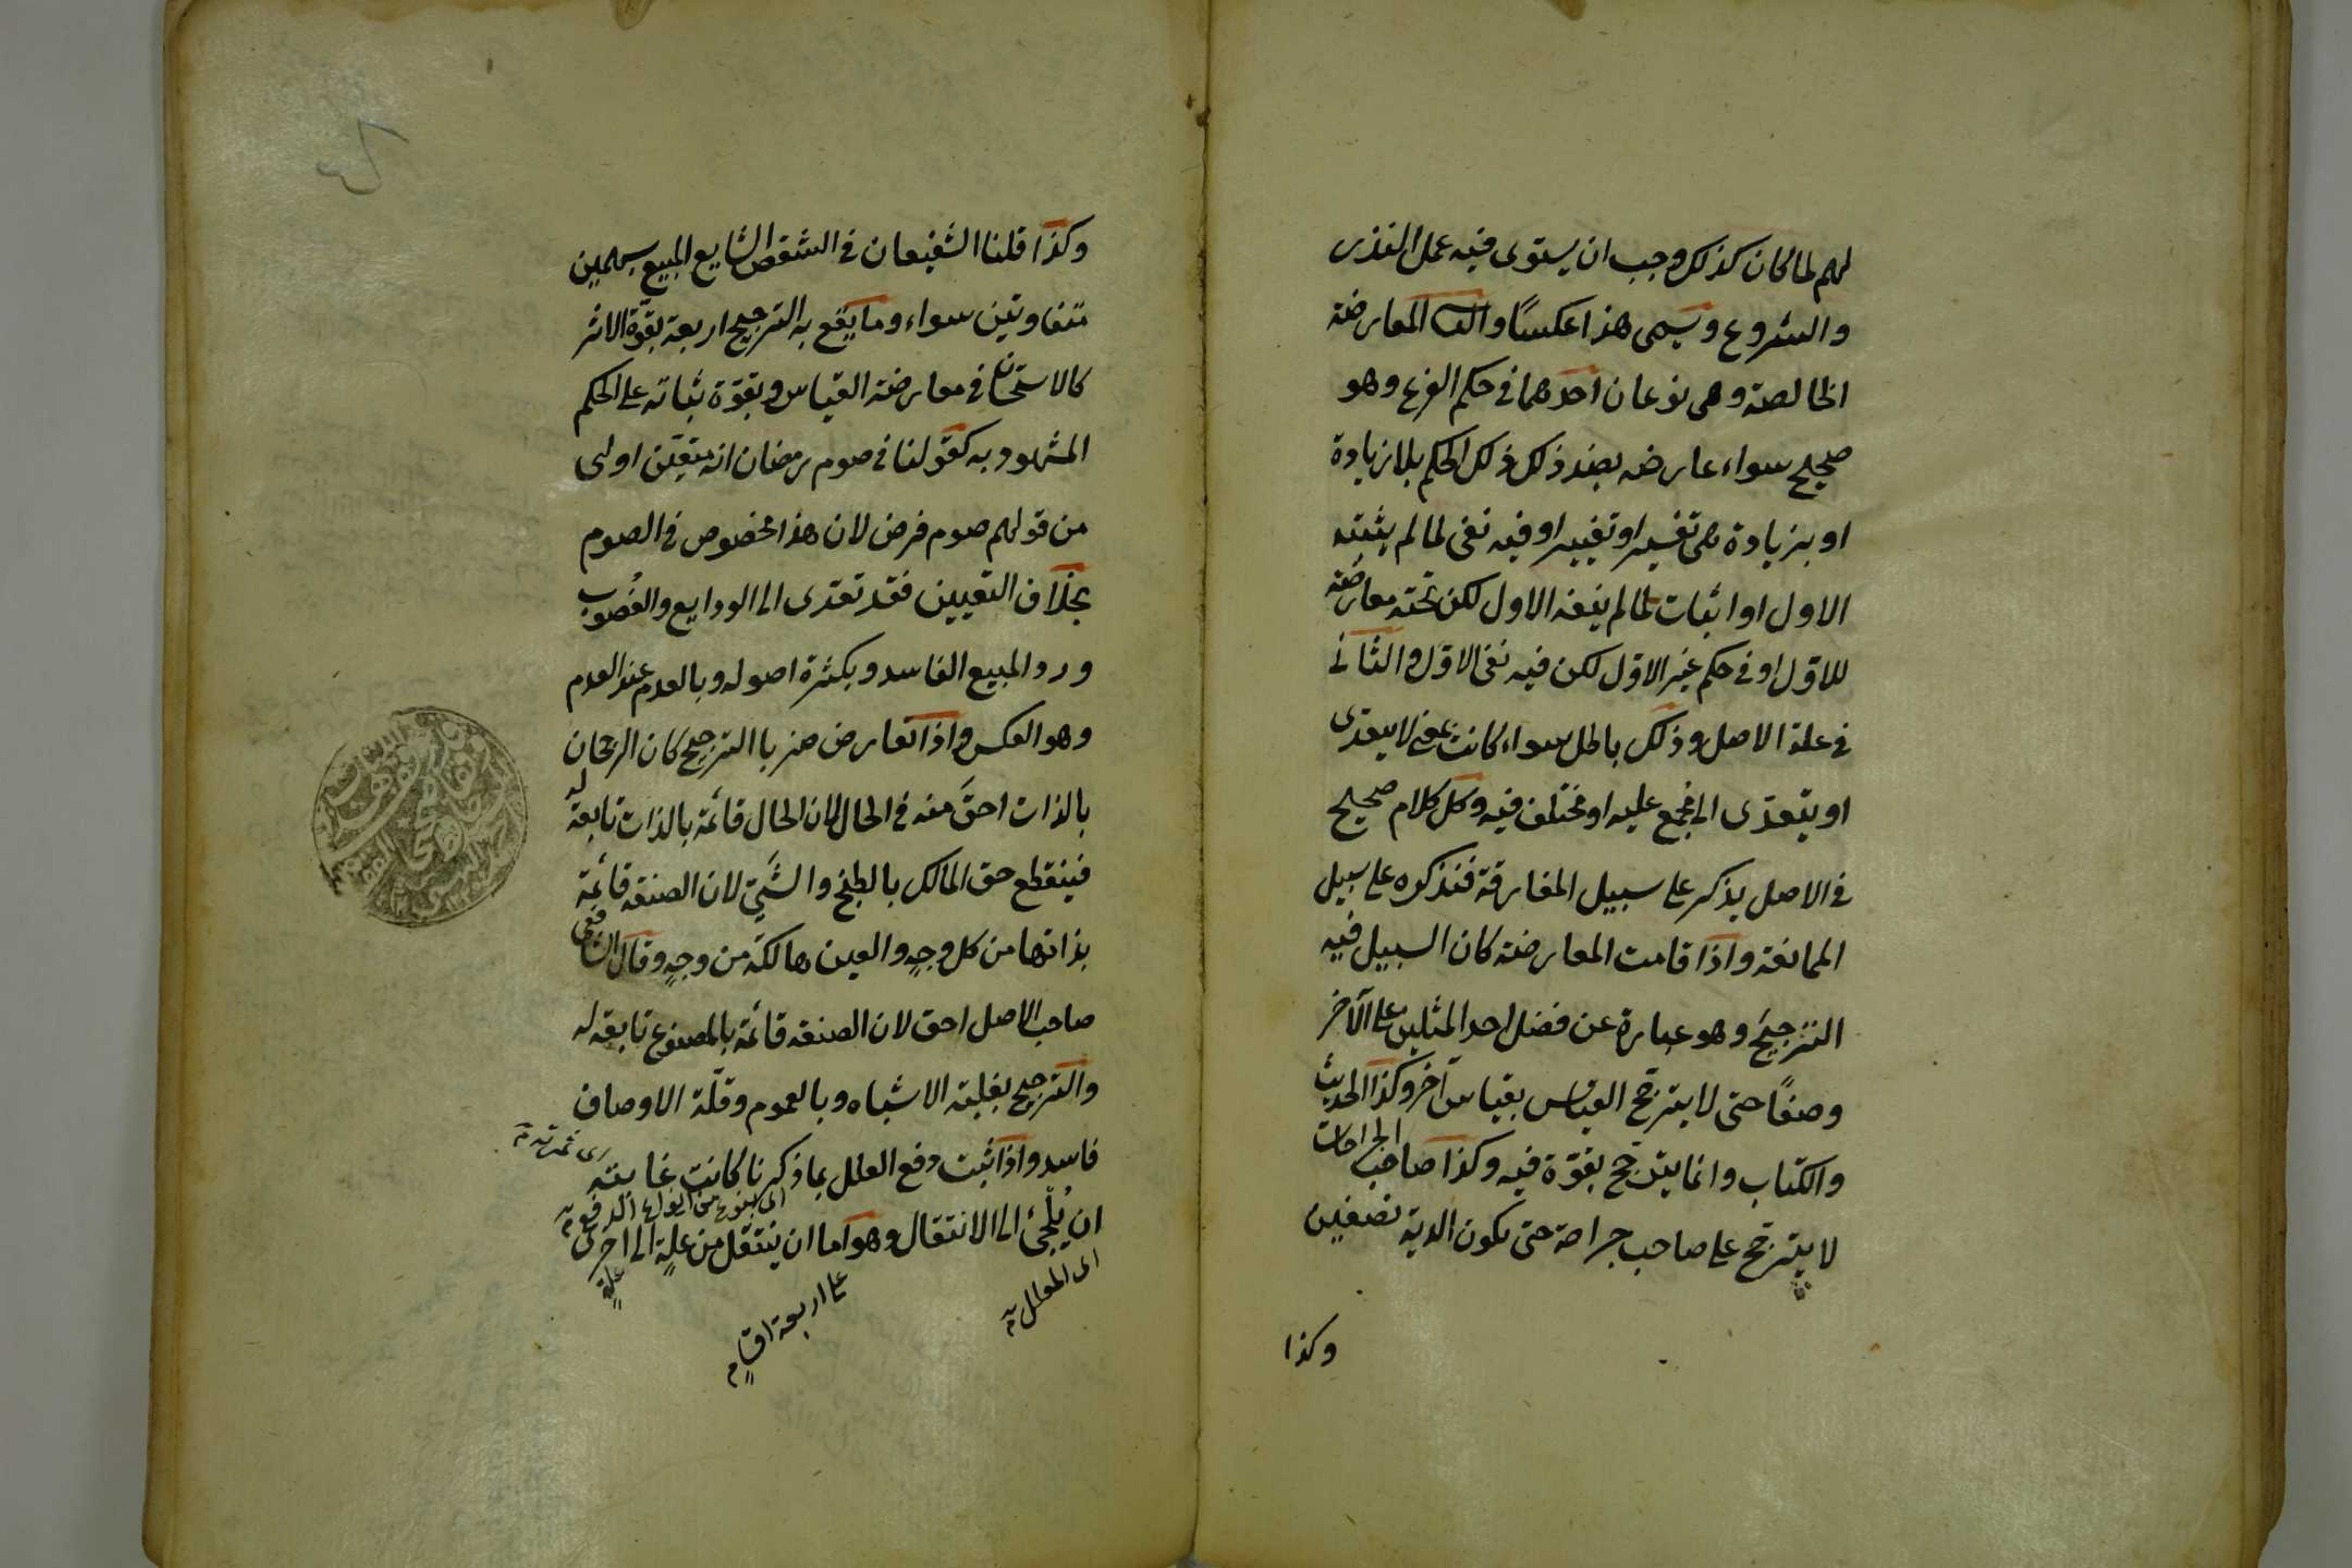 لهم لما كان كذلك وجب ان يستوى فيه عمل النذر
والشروع ويسمى هذا عكسًا والثانى المعارضة
الخالصة وهى نوعان احدهما فى حكم الفرع وهو
صحيح سواء عارضه بضد ذلك ذلك الحكم بلا زيادة
او بزيادة هى تفسير او تغيير او فيه نفى لما لم يثبته
الاول او اثبات لما لم ينفه الاول لكن تحته معارضة
للاول او فى حكم غير الاول لكن فيه نفى الاول والثانى
فى علة الاصل وذلك باطل سواء كانت بمعنى لا يتعدى
او يتعدى الى مجمع عليه او مختلف فيه وكل كلام صحيح
فى الاصل يذكر على سبيل المفارقة فنذكره على سبيل
الممانعة واذا قامت المعارضة كان السبيل فيه
الترجيح وهو عبارة عن فضل احد المثلين على الآخر
وصفًا حتى لا يترجح القياس بقياس آخر وكذا الحديث
والكتاب وانما يترجح بقوة فيه وكذا صاحب الجراحات
لا يترجح على صاحب جراحة حتى تكون الدية نصفين
وكذا
وكذا قلنا الشفيعان فى الشقص الشايع المبيع بسهمين
متفاوتين سواء وما يقع به الترجيح اربعة بقوة الاثر
كالاستحسان فى معارضة القياس وبقوة ثباته على الحكم
المشهود به كقولنا فى صوم رمضان انه متعين اولى
من قولهم صوم فرض لان هذا مخصوص فى الصوم
بخلاف التعيين فقد تعدى الى الودايع والغصوب
ورد المبيع الفاسد وبكثرة اصوله وبالعدم عند العدم
وهو العكس واذا تعارض ضربا الترجيح كان الرجحان
بالذات احق منه فى الحال لان الحال قائمة بالذات تابعة له
فينقطع حق المالك بالطبخ والشىّ لان الصنعة قائمة
بذاتها من كل وجهٍ والعين هالكة من وجهٍ وقال الشافعى
صاحب الاصل احق لان الصنعة قائمة بالمصنوع تابعة له
والترجيح بغلبة الاشباه وبالعموم وقلّة الاوصاف
فاسد واذا ثبت دفع العلل بما ذكرنا كانت غايته
اى ثمرته
اى بنوع من انواع الدفع
ان يُلجئ الى الانتقال وهو اما ان ينتقل من علةٍ الى اخرى
اى المعلل
على اربعة اقسام
علةٍ